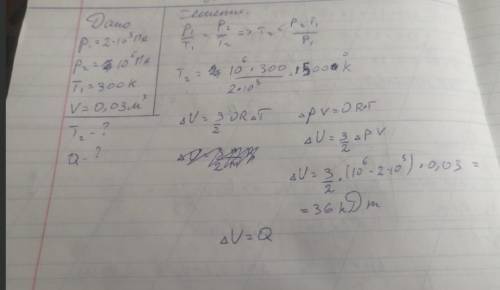 Дано
P₁=2·10⁵Па
P₂=10⁶Па
T₁=300К
V=0,03м³
T₂-?
Q-?
Решение.
P₁/T₁ = P₂/T₂ => T₂ = P₂T₁/P₁
T₂ = 10⁶·300/2·10⁵ = 1500К
ΔU=3/2 ϑRΔT ΔPV=ϑRΔT
ΔU=3/2 ΔPV
ΔU=3/2·(10⁶-2·10⁵)·0,03=
=36кДж
ΔU=Q